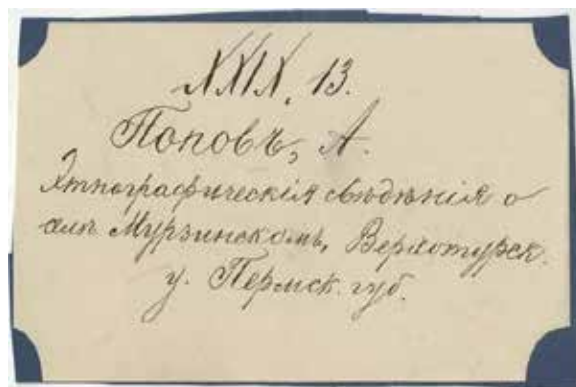 XXIX, 13.
Поповъ, А.
Этнографическія свѣдѣнія о
селѣ Мурзинскомъ, Верхотурск.
у. Пермск. губ.